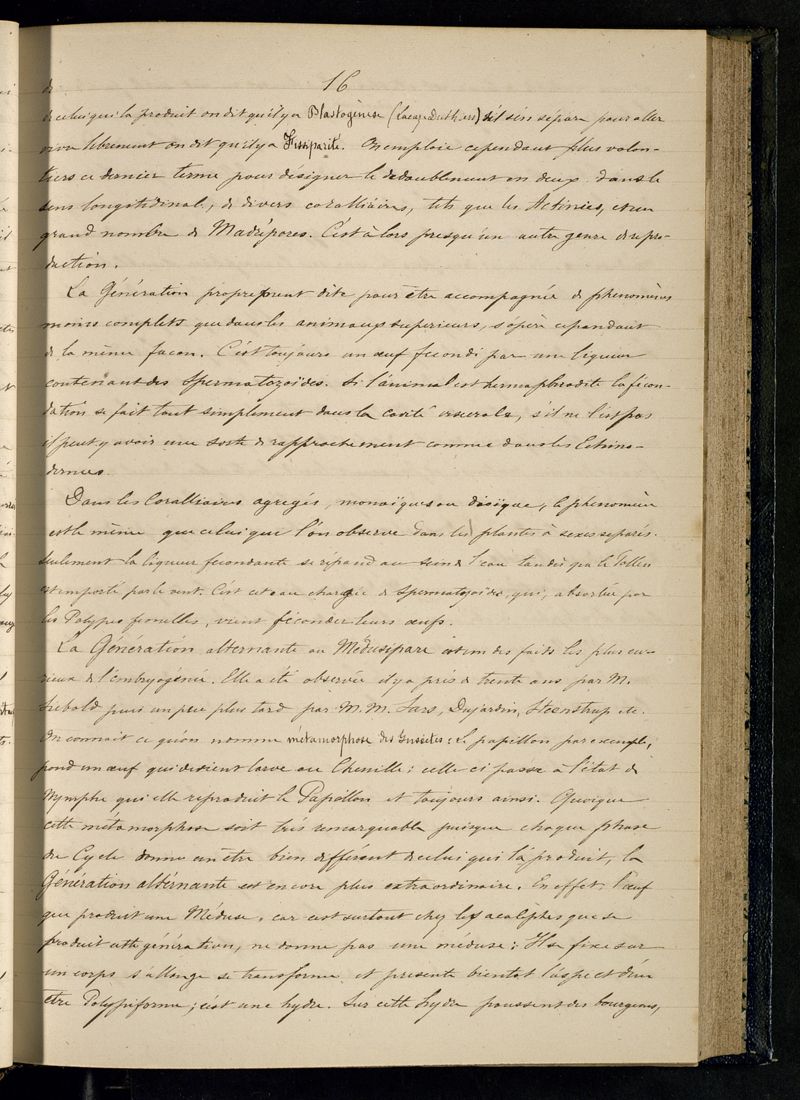 16
de
de celui qui la produit on dit qu'il y a Blastogènese (Lacaze Duthiers) s'il s'en sépare pour aller
vivre librement on dit qu'il y a Fissiparité. On emploie cependant plus volon-
tiers ce dernier terme pour designer le dedoublement en deux dans le
sens longitidinal, de divers coralliaires, tels que les Actinies, et un
grand nombre de Madrépores. C'est alors presqu'un autre genre de repro-
duction.
La Génération proprement dite pour être accompagnée de phenomènes
moins complets que dans les animaux superieurs, s'opère cependant
de la même façon. C'est toujours un œuf fecondé par une liqueur
contenant des Spermatozoïdes. Si l'animal est hermaphrodite la fécon-
dation se fait tout simplement dans la cavité viscerale, s'il ne l'est pas
il peut y avoir une sorte de rapprochement comme dans les Echino-
dermes.
Dans les Coralliaires agregés, monoïques ou dioïque, le phenomène
est le même que celui que l'on observe dans les plantes à sexes separés.
Seulement la liqueur fecondante se répand au sein de l'eau tandis que le Pollen
est emporté par le vent. C'est cet eau chargée de Spermatozoïdes, qui, absorbée par
les Polypes femelles, vient féconder leurs œufs.
La Génération alternante ou Médusipare est un des faits les plus cu-
rieux de l'embryogénie. Elle a été observée il y a près de trente ans par M.
Siebold puis un peu plus tard par M.M. Sars, Dujardin, Steenstrup etc.
On connait ce qu'on nomme métamorphose des Insectes: le papillon par exemple,
pond un œuf qui devient larve ou Chenille; celle ci passe à l'état de
Nymphe qui elle reproduit le Papillon et toujours ainsi. Quoique
cette métamorphose soit très remarquable puisque chaque phase
du Cycle donne un être bien différent de celui qui l'a produit, la
Génération altérnante est encore plus extraordinaire. En effet l'œuf
que produit une Méduse, car c'est surtout chez les acalèphes que se
produit cette génération, ne donne pas une méduse: Il se fixe sur
un corps s'allonge se transforme et presente bientot l'aspect d'un
être Polypiforme; c'est une hydre. Sur cette hydre poussent des bourgeons,